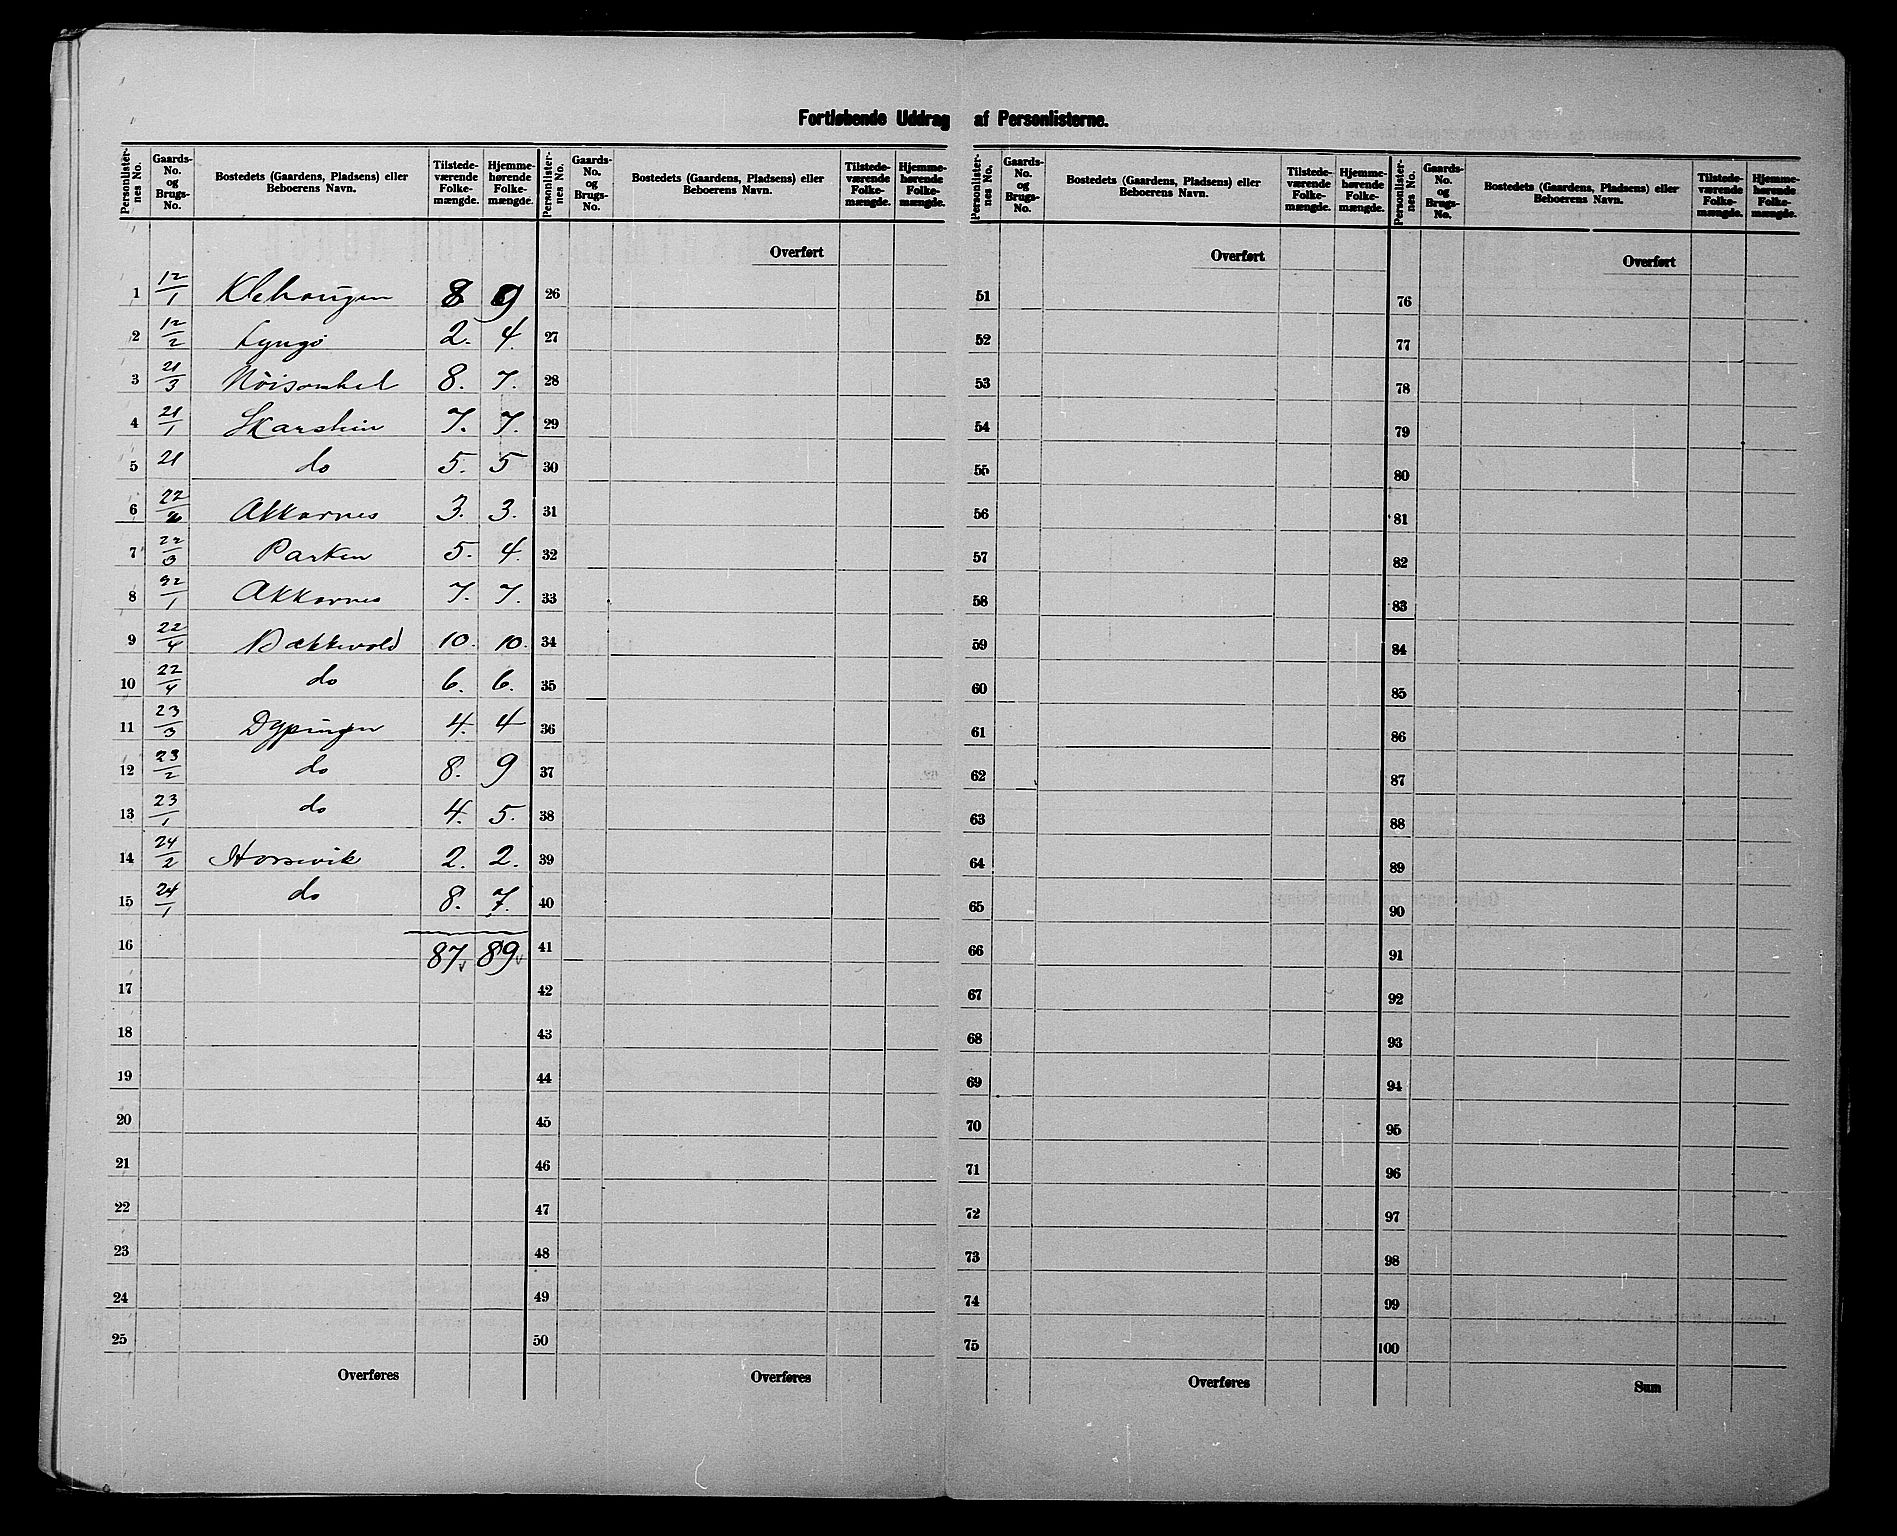 Fortløbende Uddrag af Personlisterne.
Personlisternes No. | Gaards-No. og Brugs-No. | Bostedets (Gaardens, Pladsens) eller Beboerens Navn. | Tilstedeværende Folkemængde. | Hjemmehørende Folkemængde. | Personlisternes No. | Gaards-No. og Brugs-No. | Bostedets (Gaardens, Pladsens) eller Beboerens Navn. | Tilstedeværende Folkemængde. | Hjemmehørende Folkemængde. | Personlisternes No. | Gaards-No. og Brugs-No. | Bostedets (Gaardens, Pladsens) eller Beboerens Navn. | Tilstedeværende Folkemængde. | Hjemmehørende Folkemængde. | Personlisternes No. | Gaards-No. og Brugs-No. | Bostedets (Gaardens, Pladsens) eller Beboerens Navn. | Tilstedeværende Folkemængde. | Hjemmehørende Folkemængde.
Overført Overført Overført
1 12/1 Klehaugen 8 9 26 51 76
2 12/2 Lyngö 2. 4. 27 52 77
3 21/3 8. 7. 28 53 78
4 21/1 Skarstein 7. 7. 29 54 79
5 21 do 5. 5 30 55 80
6 22/2 Akkarnes 3. 3. 31 56 81
7 22/3 Parken 5. 4. 32 57 82
8 22/1 Akkarnes 7. 7. 33 58 83
9 22/4 Bækkevold 10. 10. 34 59 84
10 22/4 do 6. 6. 35 60 85
11 23/3 Dypingen 4. 4 36 61 86
12 23/2 do 8. 9 37 62 87
13 23/1 do 4. 5. 38 63 88
14 24/2 Horsevik 2. 2. 39 64 89
15 24/1 do 8. 7. 40 65 90
16 87 89 41 66 91
17 42 67 92
18 43 68 93
19 44 69 94
20 45 70 95
21 46 71 96
22 47 72 97
23 48 73 98
24 49 74 99
25 50 75 100
Overføres Overføres Overføres Sum